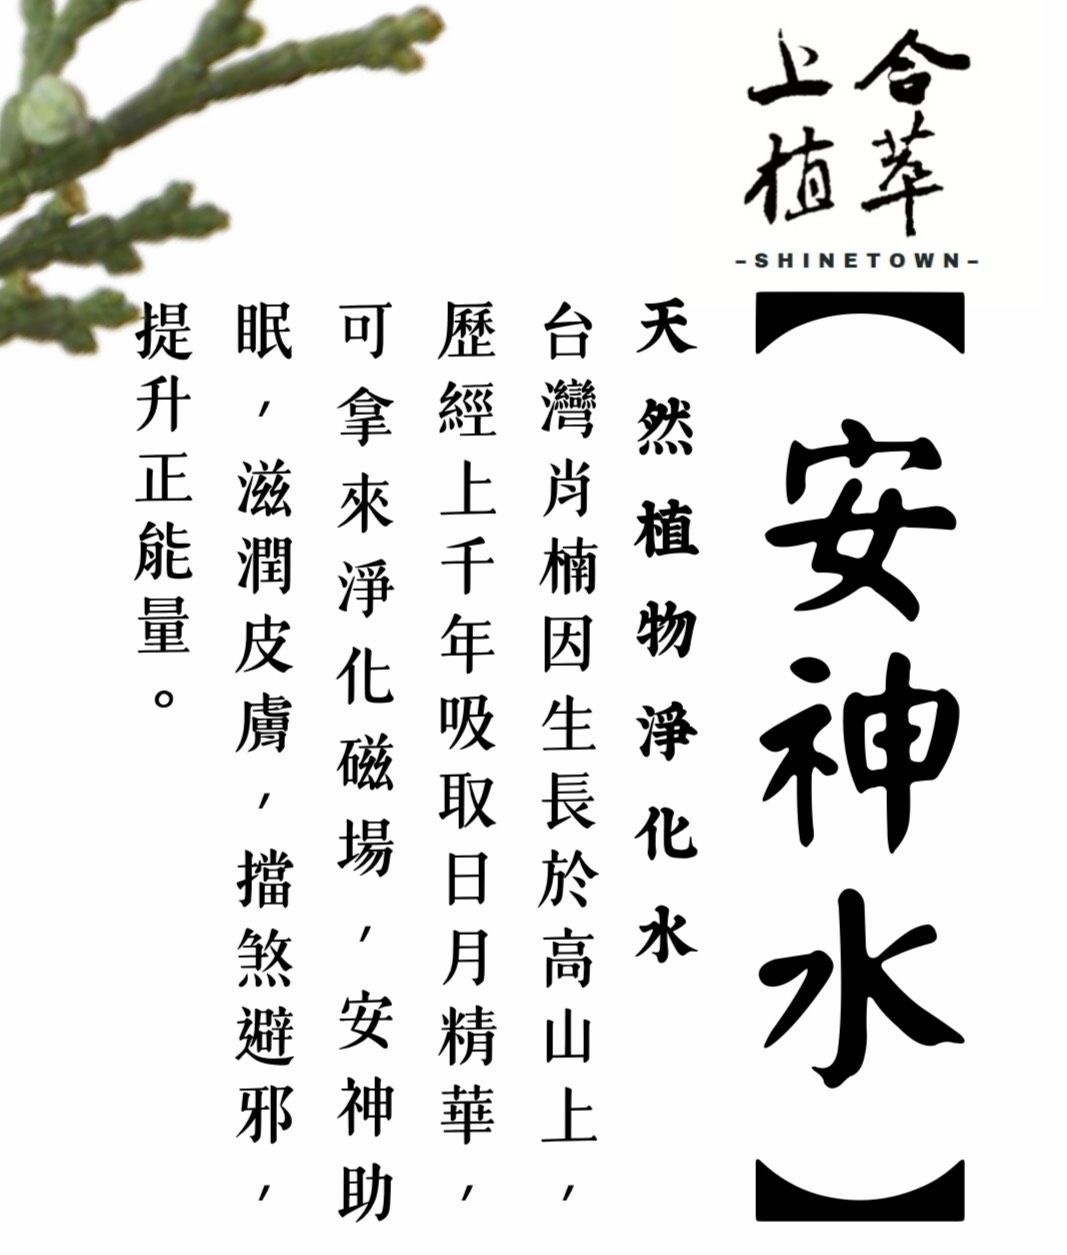 上合
植萃
-SHINETOWN-
【安神水】
天然植物淨化水
台灣肖楠因生長於高山上，
歷經上千年吸取日月精華，
可拿來淨化磁場，安神助
眠，滋潤皮膚，擋煞避邪，
提升正能量。